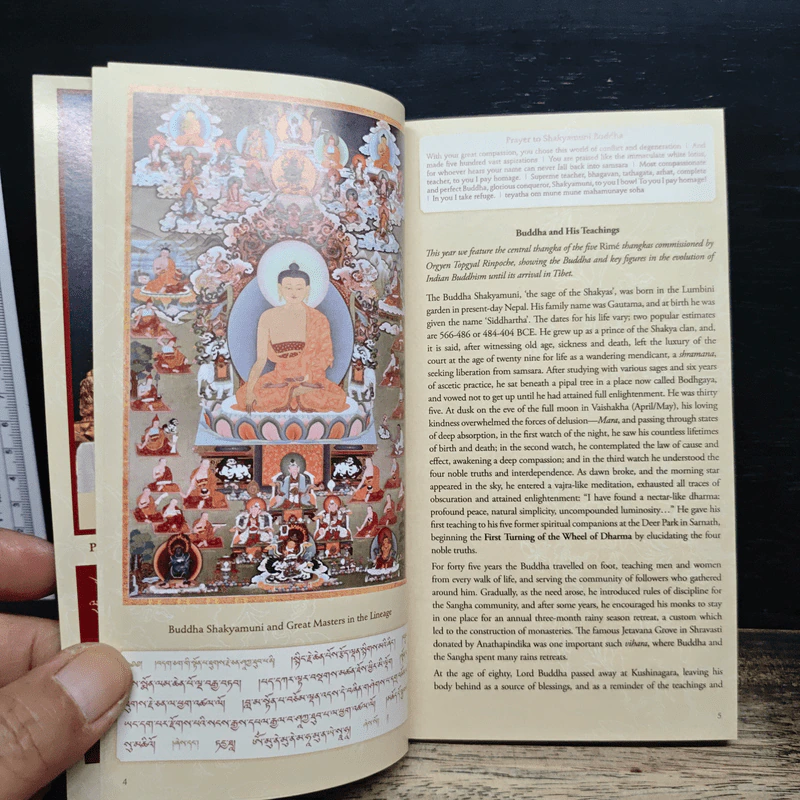 Buddha Shakyamuni and Great Masters in the Lineage
4
Prayer to Shakyamuni Buddha
With your great compassion, you chose this world of conflict and degeneration | And
made five hundred vast aspirations | You are praised like the immaculate white lotus,
for whoever hears your name can never fall back into samsara | Most compassionate
teacher, to you I pay homage. | Supreme teacher, bhagavan, tathagata, arhat, complete
and perfect Buddha, glorious conqueror, Shakyamuni, to you I bow! To you I pay homage!
| In you I take refuge. | teyatha om mune mune mahamunaye soha
Buddha and His Teachings
This year we feature the central thangka of the five Rimé thangkas commissioned by
Orgyen Topgyal Rinpoche, showing the Buddha and key figures in the evolution of
Indian Buddhism until its arrival in Tibet.
The Buddha Shakyamuni, ‘the sage of the Shakyas’, was born in the Lumbini
garden in present-day Nepal. His family name was Gautama, and at birth he was
given the name ‘Siddhartha’. The dates for his life vary; two popular estimates
are 566-486 or 484-404 BCE. He grew up as a prince of the Shakya clan, and,
it is said, after witnessing old age, sickness and death, left the luxury of the
court at the age of twenty nine for life as a wandering mendicant, a shramana,
seeking liberation from samsara. After studying with various sages and six years
of ascetic practice, he sat beneath a pipal tree in a place now called Bodhgaya,
and vowed not to get up until he had attained full enlightenment. He was thirty
five. At dusk on the eve of the full moon in Vaishakha (April/May), his loving
kindness overwhelmed the forces of delusion—Mara, and passing through states
of deep absorption, in the first watch of the night, he saw his countless lifetimes
of birth and death; in the second watch, he contemplated the law of cause and
effect, awakening a deep compassion; and in the third watch he understood the
four noble truths and interdependence. As dawn broke, and the morning star
appeared in the sky, he entered a vajra-like meditation, exhausted all traces of
obscuration and attained enlightenment: “I have found a nectar-like dharma:
profound peace, natural simplicity, uncompounded luminosity…” He gave his
first teaching to his five former spiritual companions at the Deer Park in Sarnath,
beginning the First Turning of the Wheel of Dharma by elucidating the four
noble truths.
For forty five years the Buddha travelled on foot, teaching men and women
from every walk of life, and serving the community of followers who gathered
around him. Gradually, as the need arose, he introduced rules of discipline for
the Sangha community, and after some years, he encouraged his monks to stay
in one place for an annual three-month rainy season retreat, a custom which
led to the construction of monasteries. The famous Jetavana Grove in Shravasti
donated by Anathapindika was one important such vihara, where Buddha and
the Sangha spent many rains retreats.
At the age of eighty, Lord Buddha passed away at Kushinagara, leaving his
body behind as a source of blessings, and as a reminder of the teachings and
5